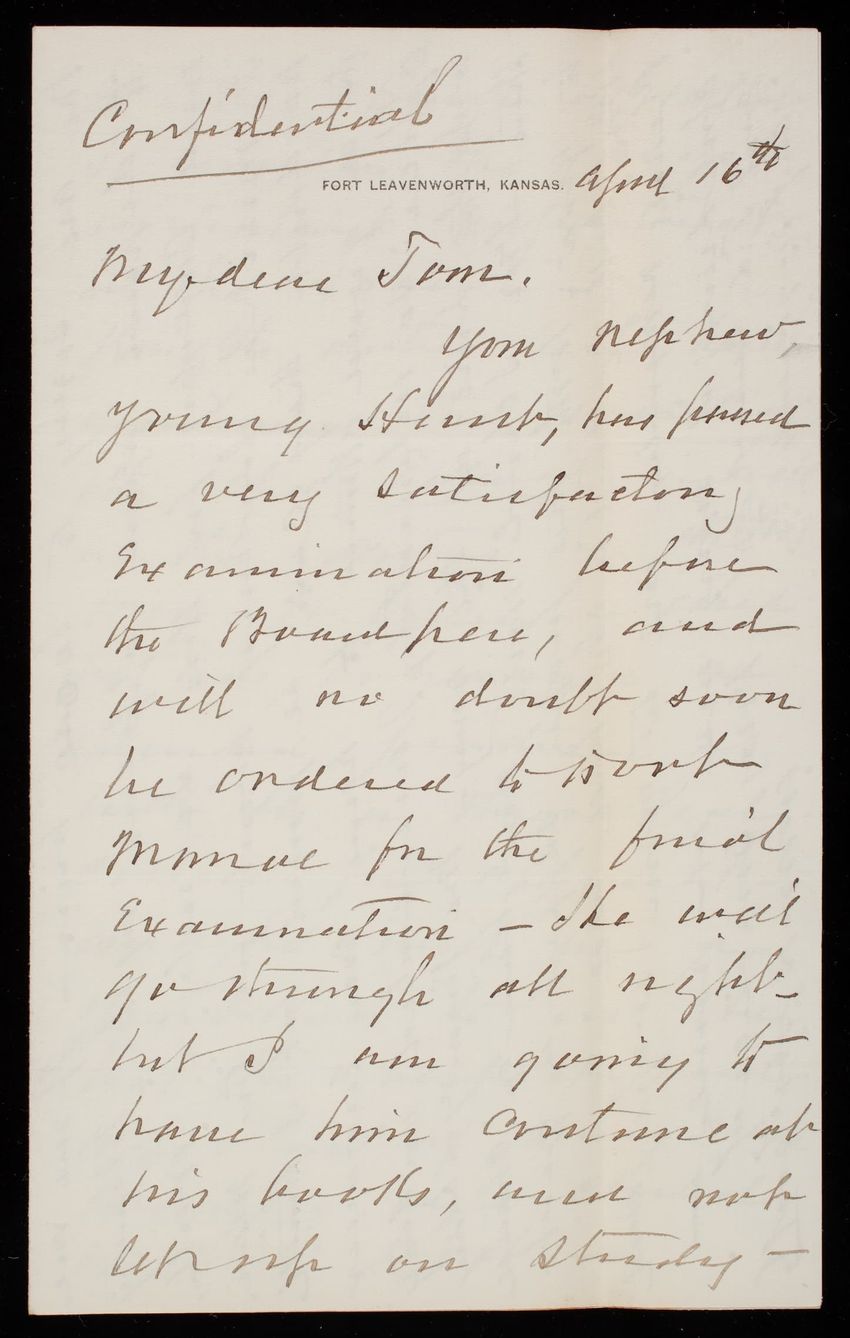 Confidential
FORT LEAVENWORTH, KANSAS. April 16th
My dear Tom.
Your nephew,
young Hunt, has passed
a very satisfactory
Examination before
the Board here, and
will no doubt soon
be ordered to Fort
Monroe for the final
Examination — He will
go through all right —
but I am going to
have him continue at
his books, and not
let up on study —